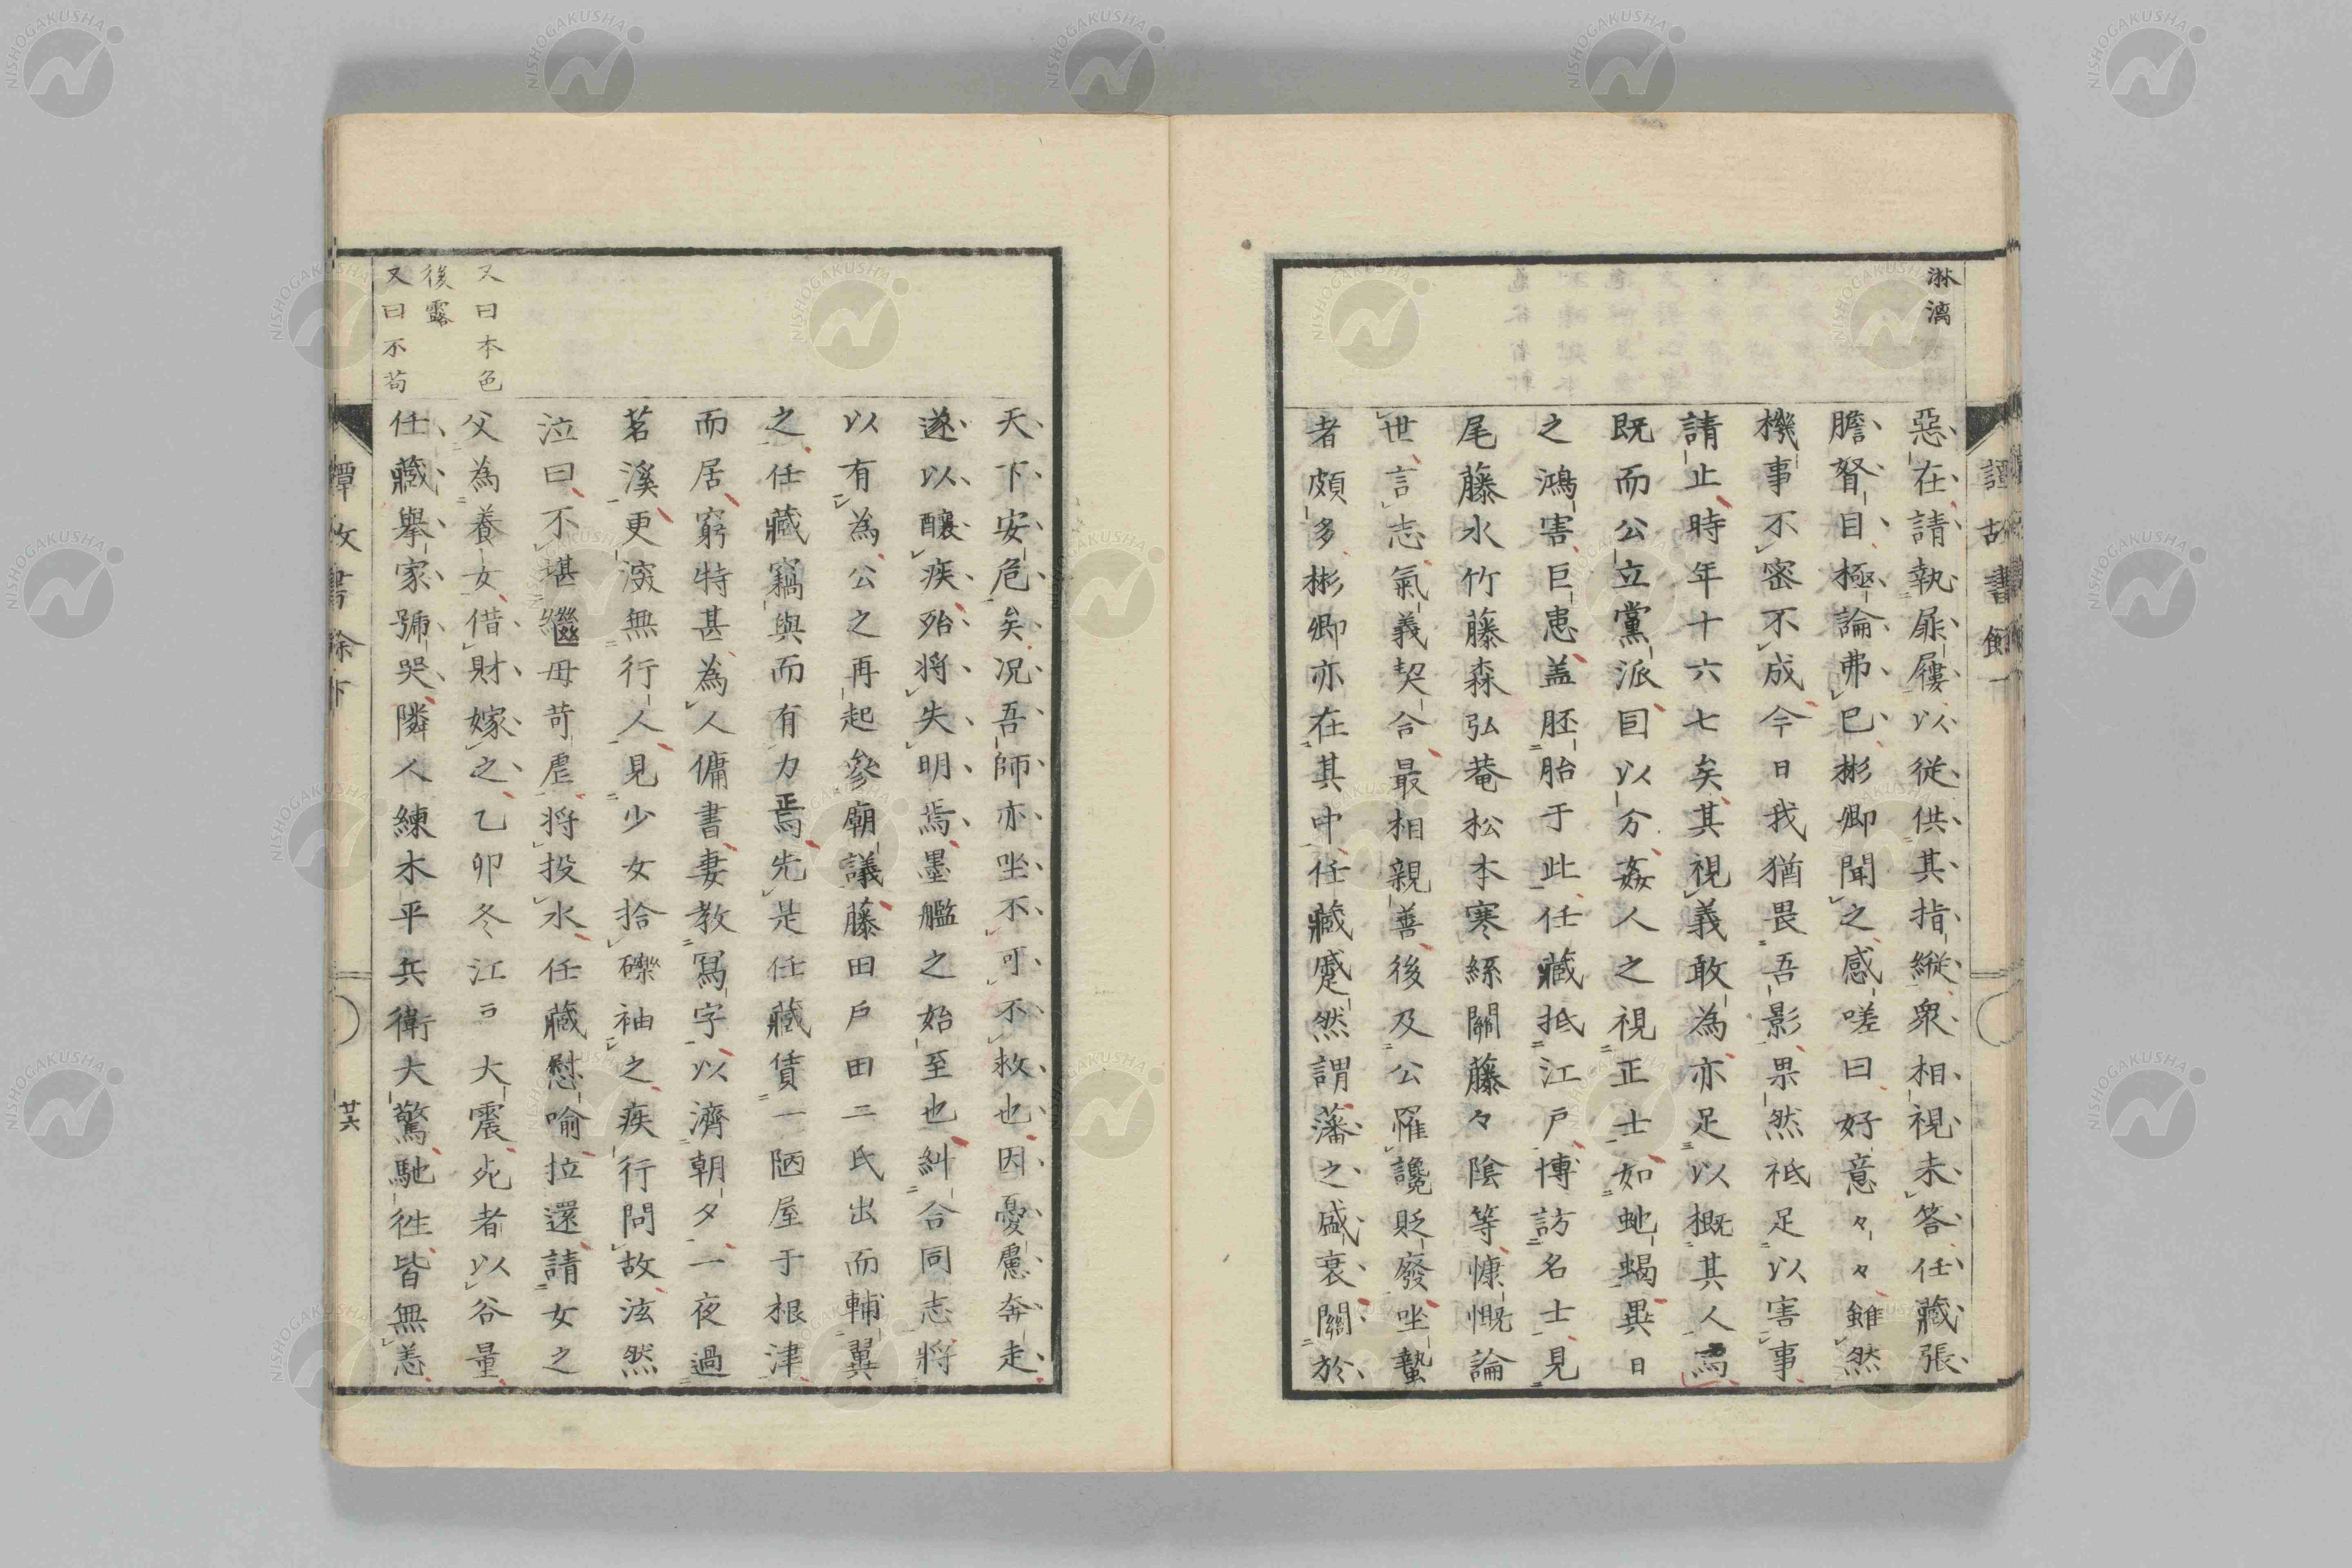 淋漓
惡在請執屝屨以從供其指縱衆相視未答任藏張
膽督目極論弗已彬卿聞之感嗟曰好意々々雖然
機事不密不成今日我猶畏吾影果然祗足以害事
請止時年十六七矣其視義敢為亦足以概其人焉
既而公立黨派目以分姦人之視正士如虵蝎異日
之鴻害巨患蓋胚胎于此任藏抵江戸博訪名士見
尾藤水竹藤森弘菴松本寒緜關藤々陰等慷慨論
世言志氣義契合最相親善後及公罹讒貶廢坐蟄
者頗多彬卿亦在其中任藏蹙然謂藩之盛衰關於
天下安危矣况吾師亦坐不可不救也因憂慮奔走
遂以釀疾殆將失明焉墨艦之始至也糾合同志將
以有為公之再起參廟議藤田戸田二氏出而輔翼
之任藏竊與而有力焉先是任藏賃一陋屋于根津
而居窮特甚為人傭書妻教寫字以濟朝夕一夜過
茗溪更深無行人見少女拾礫袖之疾行問故泫然
泣曰不堪繼母苛虐將投水任藏慰喻拉還請女之
父為養女借財嫁之乙卯冬江戸大震死者以谷量
任藏舉家號哭隣人練木平兵衛大驚馳往皆無恙
又曰本色
後露
又曰不苟
譚故書餘
廿六